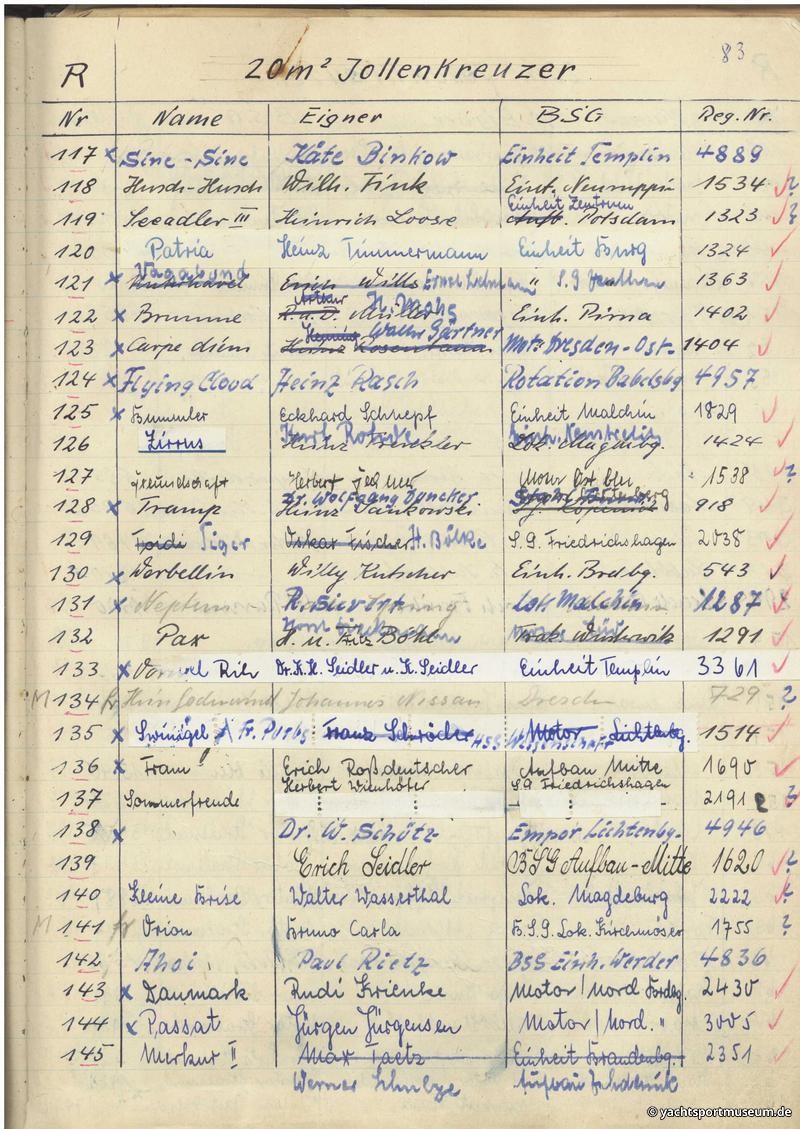 83
R 20m² Jollenkreuzer
Nr Name Eigner BSG Reg. Nr.
117 x Sine-Sine Käte Binkow Einheit Templin 4889
118 Husch-Husch Wilh. Fink Einh. Neuruppin 1534 ?
Einheit Zentrum
119 Seeadler III Heinrich Loose Aufb. Potsdam 1323 ?
120 Patria Heinz Timmermann Einheit Burg 1324
Vagabund
121 x Erich Wills Ernst Lehmann " S.G 1363
Arthur H. Mohs
122 x Brumme R. u. D. Müller Einh. Pirna 1402
Henning Walter Gärtner
123 x Carpe diem Heinz Rosentann Mot. Dresden-Ost- 1404
124 x Flying Cloud Heinz Rasch Rotation Babelsbg 4957
125 x Bummler Eckhard Schnepf Einheit Malchin 1829
Kurt Einh. Neustrelitz
126 Zirrus Heinz Lok. Magdbg. 1424
127 Freundschaft Herbert Motor 1538 ?
Dr. Wolfgang Duncker
128 x Tramp Heinz Dankowski 918
129 Toidi Tiger Oskar Fischer H. Bölke S.G. Friedrichshagen 2038
130 x Werbellin Willy Kutscher Einh. Brdbg. 543
131 x Neptun R. Sievert Lok Malchin 1287
132 Pax H. u. Fritz Böhl 1291
133 x Rih Dr. K. H. Seidler u. K. Seidler Einheit Templin 3361
M 134 fr Johannes Nissan Dresden 729 ?
135 x Swinägel Fr. Purbs Franz Schröder HSG Wissenschaft Motor Lichtenbg. 1514
136 x Fram Erich Roßdeutscher Aufbau Mitte 1690
Herbert Wienhöfer S.G Friedrichshagen
137 Sommerfreude 2191 ?
138 x Dr. W. Schötz Empor Lichtenbg. 4946
139 Erich Seidler BSG Aufbau-Mitte 1620 ?
140 Kleine Brise Walter Wasserthal Lok. Magdeburg 2222
M 141 fr Orion Bruno Carla B.S.G. Lok. Kirchmöser 1755 ?
142 Ahoi Paul Rietz BSG Einh. Werder 4836
143 x Danmark Rudi Krienke Motor/Nord Brdbg. 2430
144 x Passat Jürgen Jürgensen Motor/Nord. " 3005
145 Merkur II Max Taetz Einheit Brandenbg. 2351
Werner Schulze Aufbau Zehdenick
© yachtsportmuseum.de